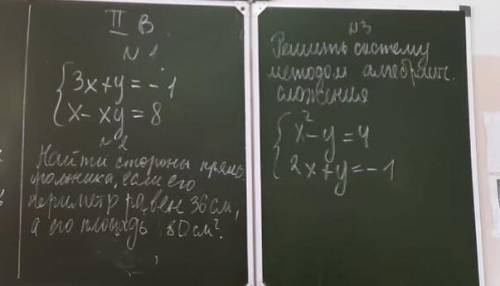 II В
№1
3x+y=-1
x-xy=8
№2
Найти стороны прямо
угольника, если его
периметр равен 36 см,
а его площадь 80 см².
№3
Решить систему
методом алгебраич.
сложения
x²-y=4
2x+y=-1